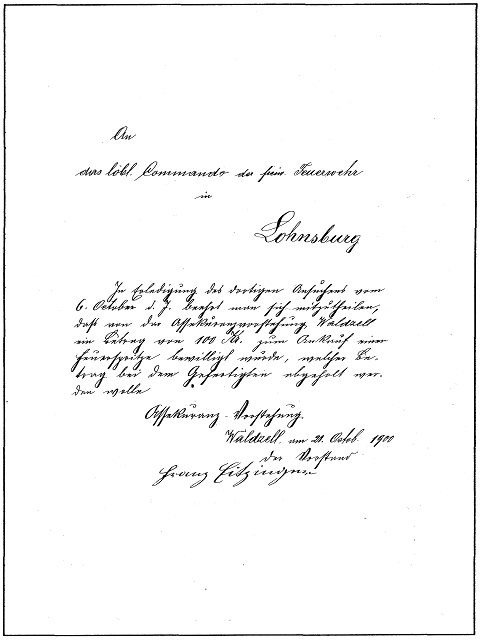 An
das löbl. Commando der freiw. Feuerwehr
in
Lohnsburg
In Erledigung des dortigen Ansuchens vom
6. October d. J. beehrt man sich mitzutheilen,
daß von der Assekuranzvorstehung Waldzell
ein Betrag von 100 Kr. zum Ankauf einer
Feuerspritze bewilligt wurde, welcher Be-
trag bei dem Gefertigten abgeholt wer-
den wolle
Assekuranz-Vorstehung.
Waldzell, am 21. Octob. 1900
der Vorstand
Franz Eitzinger